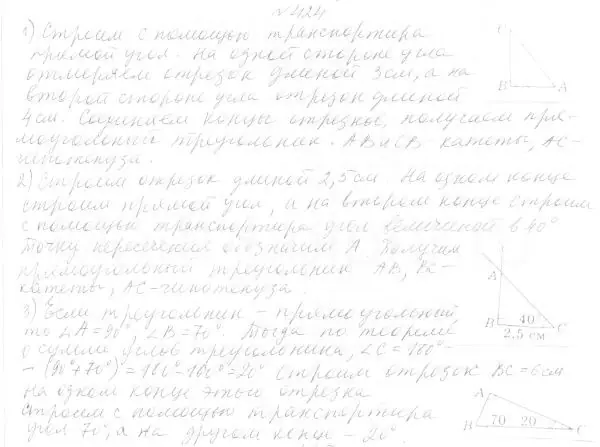 №424
1) Строим с помощью транспортира
прямой угол. На одной стороне угла
отмеряем отрезок длиной 3см, а на
второй стороне угла отрезок длиной
4см. Соединяем концы отрезков, получаем пря-
моугольный треугольник. AB и CB катеты, AC-
гипотенуза.
B A
2) Строим отрезок длиной 2,5см. На одном конце
строим прямой угол, а на втором конце строим
с помощью транспортира угол величиной в 40°
Точку пересечения обозначим A. Получим
прямоугольный треугольник AB, BC-
катеты, AC-гипотенуза.
A
B 40 C
2,5 см
3) Если треугольник - прямоугольный,
то ∠A=90° ∠B=70°. Тогда по теореме
о сумме углов треугольника, ∠C=180°-
-(90°+70°)=180°-160°=20° Строим отрезок BC=6см
На одном конце этого отрезка
строим с помощью транспортира
угол 70°, а на другом конце - 20°
A
B 70 20 C